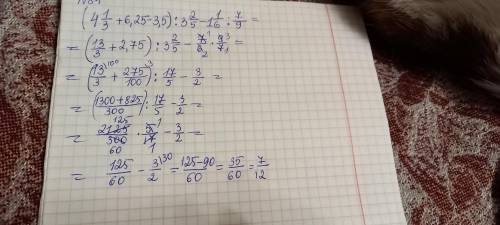 (4 1/3 + 6,25 - 3,5) : 3 2/5 - 1 1/6 : 7/9 =
= (13/3 + 2,75) : 3 2/5 - 7/6 · 9/7 =
= (13/3 + 275/100) : 17/5 - 3/2 =
= (1300+825/300) : 17/5 - 3/2 =
= 2125/300 · 5/17 - 3/2 =
= 125/60 - 3/2 = 125-90/60 = 35/60 = 7/12